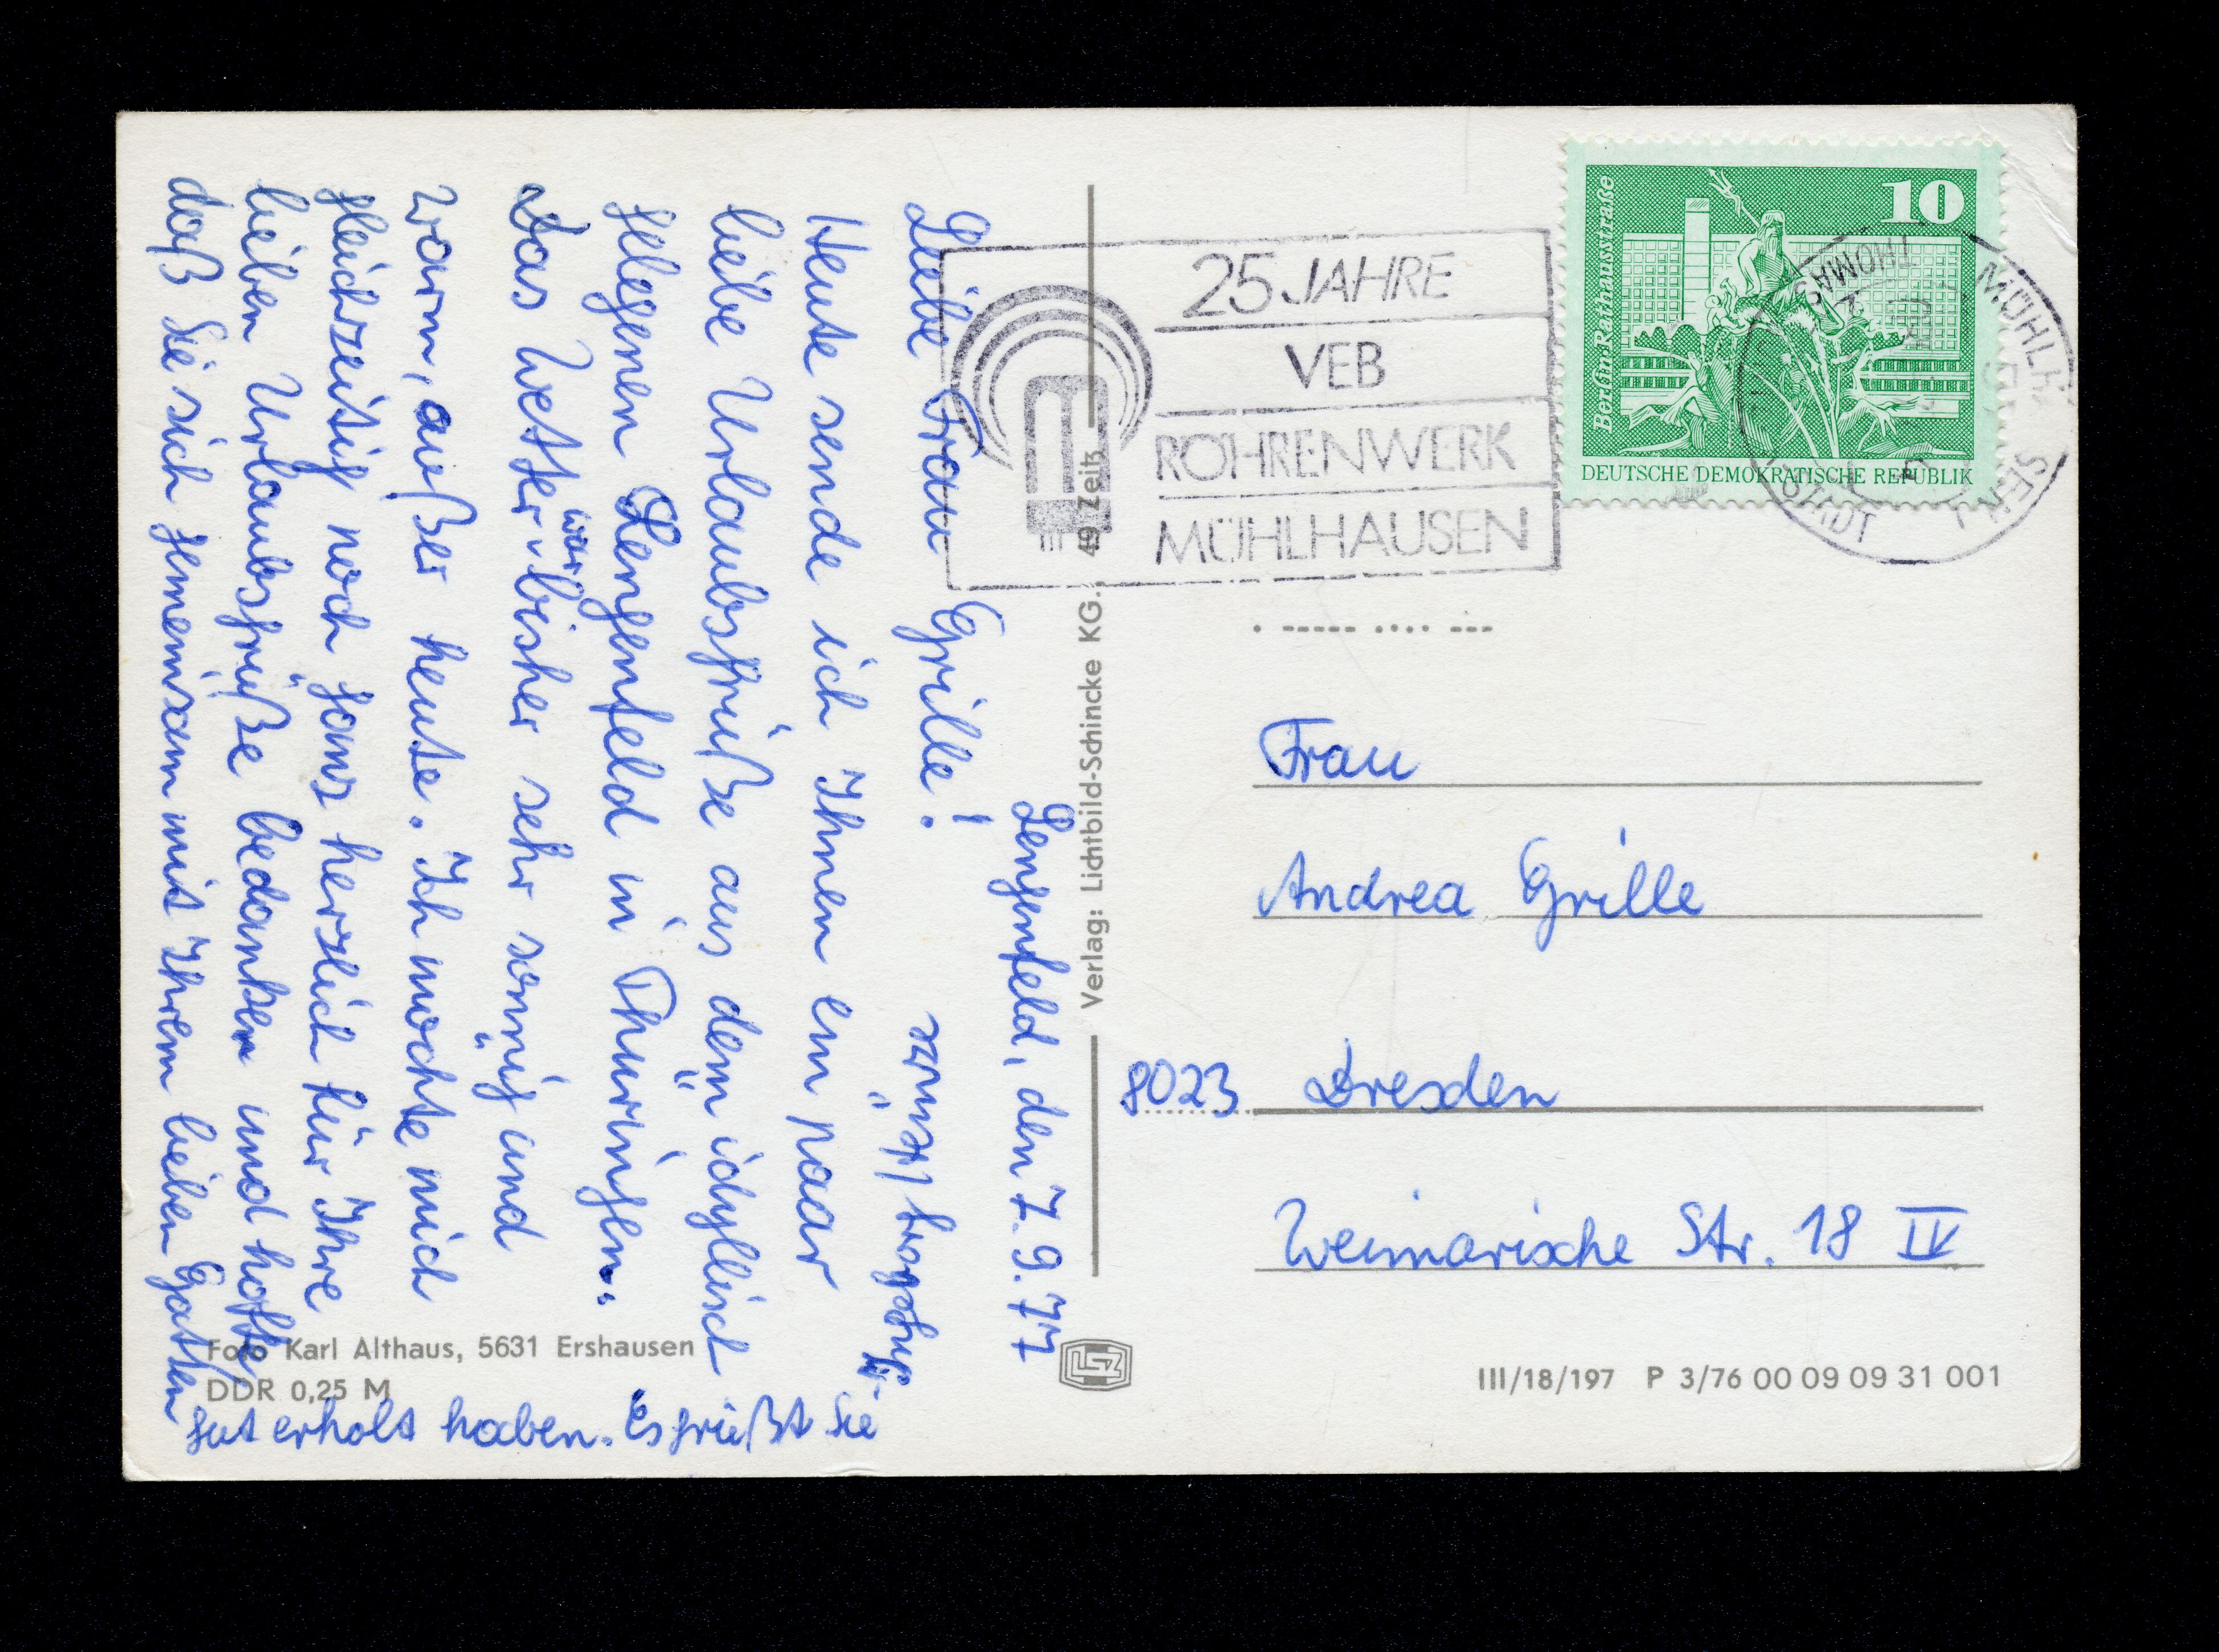 Lengenfeld, den 7.9.77
Liebe Frau Grille!
Heute sende ich Ihnen ein paar
liebe Urlaubsgrüße aus dem idyllisch
gelegenen Lengenfeld in Thüringen.
Das Wetter war bisher sehr sonnig und
warm, außer heute. Ich möchte mich
gleichzeitig noch ganz herzlich für Ihre
lieben Urlaubsgrüße bedanken und hoffe,
daß Sie sich gemeinsam mit Ihrem lieben Gatten
gut erholt haben. Es grüßt Sie
25 JAHRE
VEB
RÖHRENWERK
MÜHLHAUSEN
10
Berlin·Rathausstraße
DEUTSCHE DEMOKRATISCHE REPUBLIK
MÜHLHAUSEN
THOMAS
STADT
Frau
Andrea Grille
8023 Dresden
Weimarische Str. 18 IV
Verlag: Lichtbild-Schincke KG., 49 Zeitz
Foto Karl Althaus, 5631 Ershausen
DDR 0,25 M
III/18/197 P 3/76 00 09 09 31 001